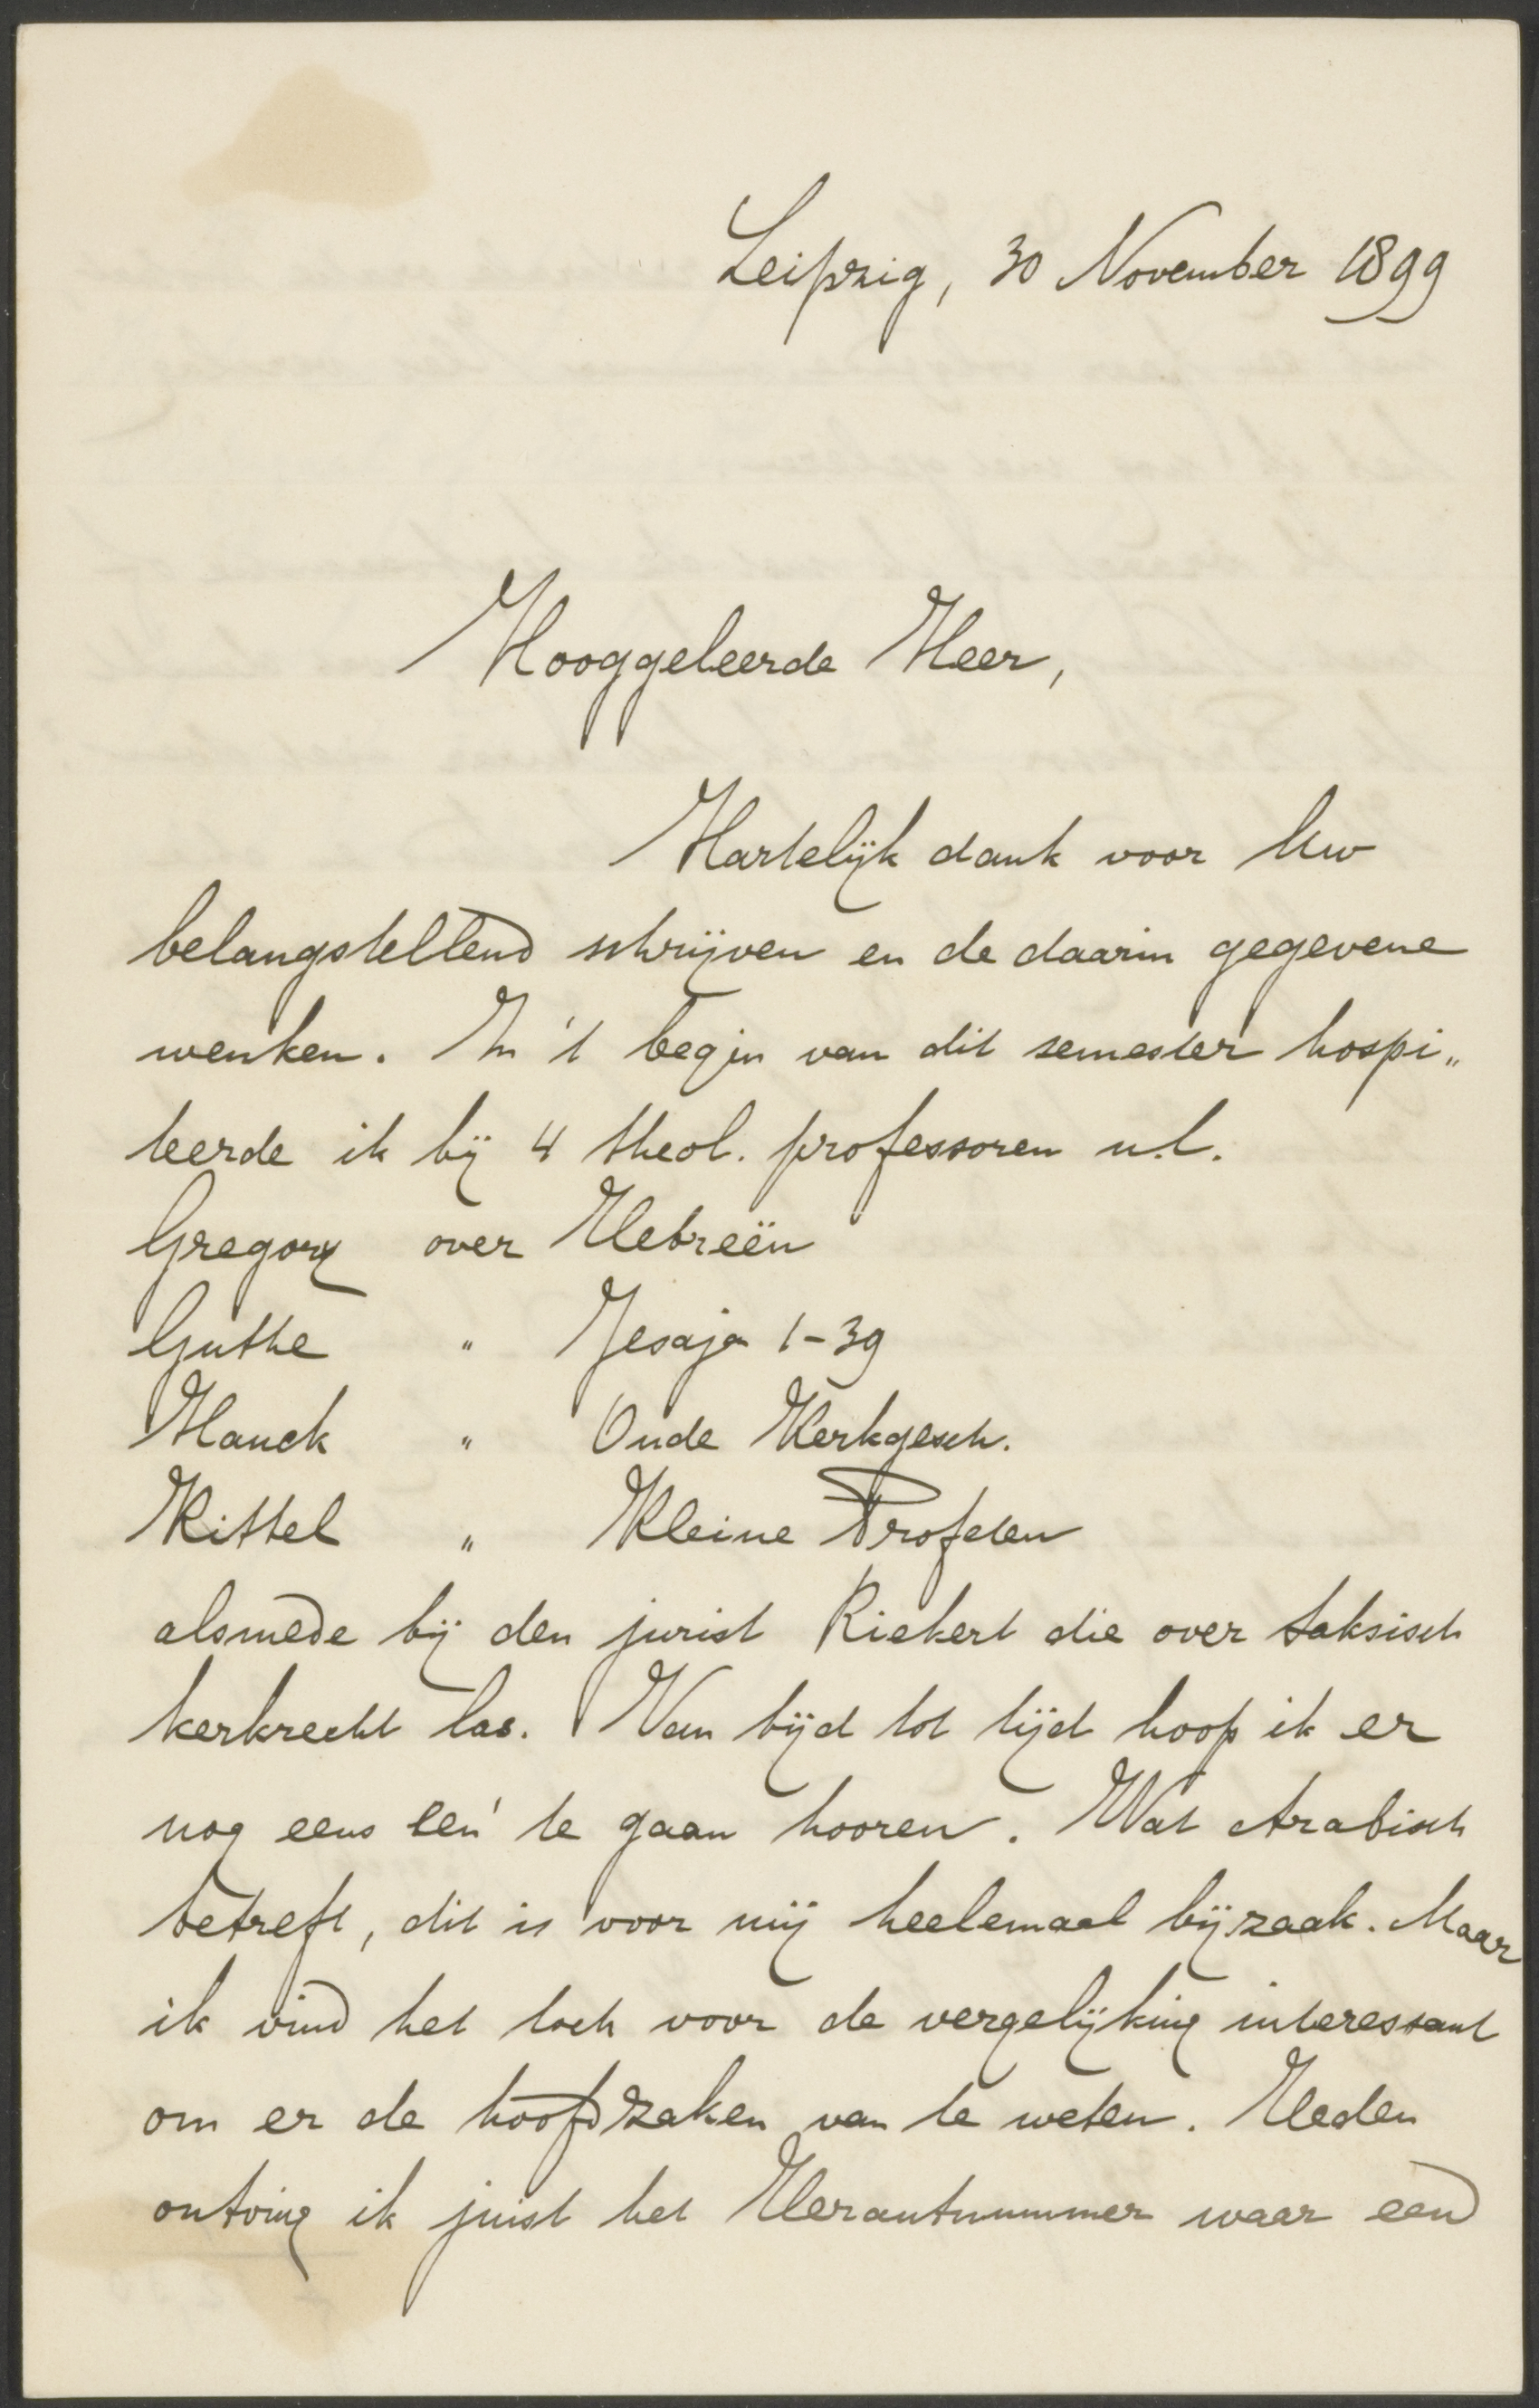 Leipzig, 30 November 1899
Hooggeleerde Heer,
Hartelijk dank voor Uw
belangstellend schrijven en de daarin gegevene
wenken. In 't begin van dit semester hospi„
teerde ik bij 4 theol. professoren n.l.
Gregory over Hebreën
Guthe " Jesaja 1-39
Hauck " Oude Kerkgesch.
Kittel " Kleine Profeten
alsmede bij den jurist Riekert die over Saksisch
kerkrecht las. Van tijd tot tijd hoop ik er
nog eens een' te gaan hooren. Wat Arabisch
betreft, dit is voor mij heelemaal bijzaak. Maar
ik vind het toch voor de vergelijking interessant
om er de hoofdzaken van te weten. Heden
ontving ik juist het Herautnummer waar een